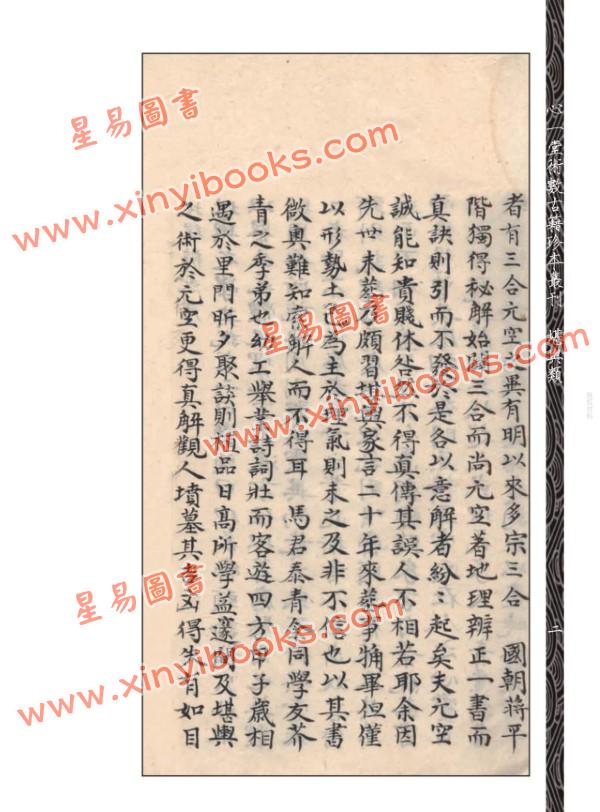 心一堂術數古籍珍本叢刊 堪輿類
二
者有三合元空之異有明以來多宗三合 國朝蔣平
階獨得秘解始闢三合而尚元空著地理辨正一書而
真訣則引而不發於是各以意解者紛〻起矣夫元空
誠能知貴賤休咎 不得真傳其誤人不相若耶余因
先世未葬乃頗習堪輿家言二十年來葬事犕畢但僅
以形勢土色為主於理氣則未之及非不信也以其書
微奧難知索解人而不得耳 馬君泰青余同學友芥
青之季弟也幼工舉業詩詞壯而客遊四方甲子歲相
遇於里門昕夕聚談則 品日高所學益邃 及堪輿
之術於元空更得真解觀人墳墓其吉凶得失有如目
星易圖書
www.xinyibooks.com
星易圖書
www.xinyibooks.com
星易圖書
www.xinyibooks.com